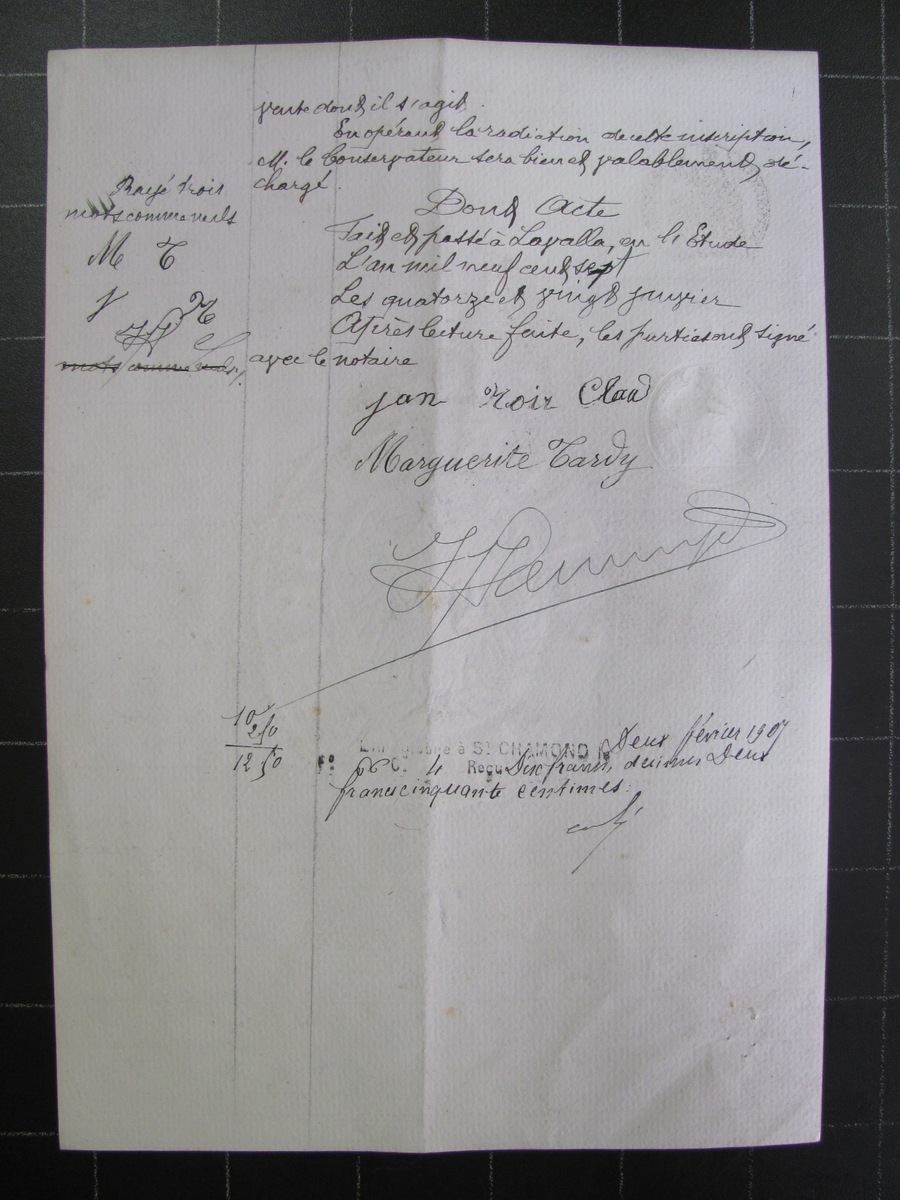 vente dont il s'agit.
En opérant la radiation de cette inscription,
M. le Conservateur sera bien et valablement dé-
chargé.
Rayé trois
mots comme nuls
M T
J
Dont Acte
Fait et passé à Lavalla, en l'Etude
L'an mil neuf cent sept
Les quatorze et vingt janvier
Après lecture faite, les parties ont signé
avec le notaire
mots comme nuls
jan Clau
Marguerite Tardy
10
2 50
12 50
à St CHAMOND le Deux février 1907
Fo 66 C. 4 Reçu Dix francs, décimes Deux
francs cinquante centimes.